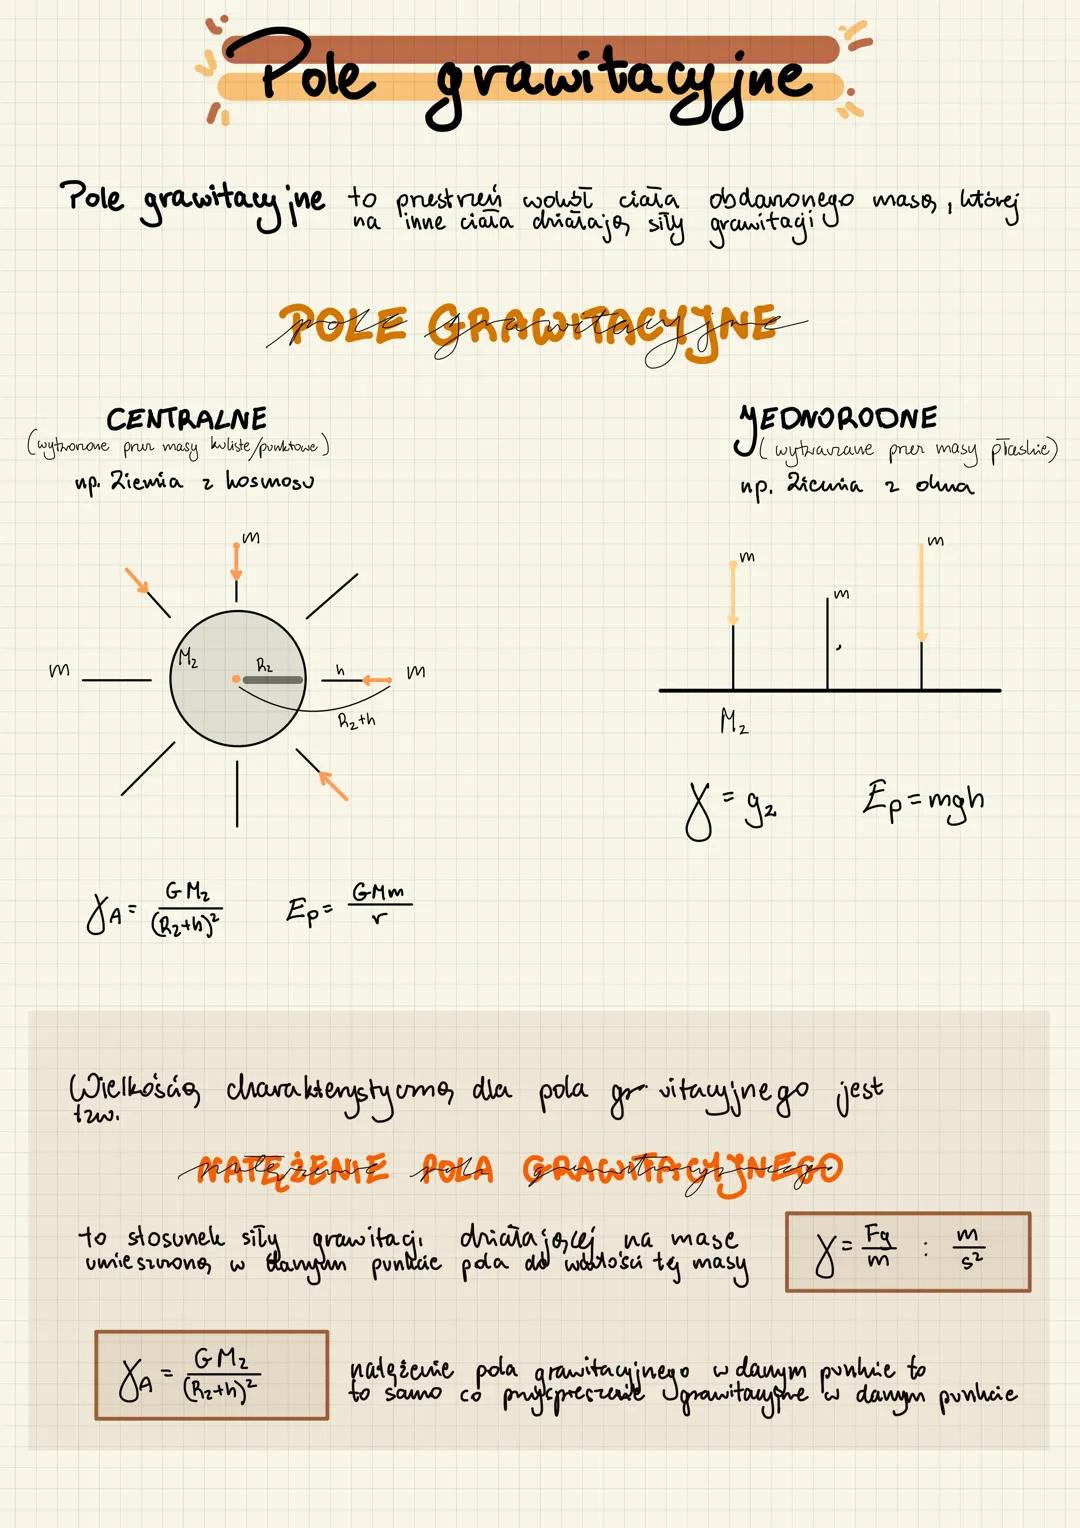 Pole grawitacyjne
Pole grawitacyjne to przestrzeń wokół ciała obdarzonego masą, której
na inne ciała działają siły grawitacji
POLE GRAWITACYJNE
CENTRALNE
(wytworzone przez masy kuliste/punktowe)
np. Ziemia z kosmosu
JEDNORODNE
(wytwarzane przez masy płaskie)
np. Ziemia z okna
m
m
M_z
R_z
h
m
R_z+h
m
m
m
M_z
γ = g_z
E_p = mgh
γ_A = GM_z/(R_z+h)²
E_p = GMm/r
Wielkością charakterystyczną dla pola gr vitacyjnego jest
tzw.
NATĘŻENIE POLA GRAWITACYJNEGO
to stosunek siły grawitacji działającej na masę
umieszczoną w danym punkcie pola do wartości tej masy
γ = Fg/m : m/s²
γ_A = GM_z/(R_z+h)²
natężenie pola grawitacyjnego w danym punkcie to
to samo co przyspieszenie grawitacyjne w danym punkcie